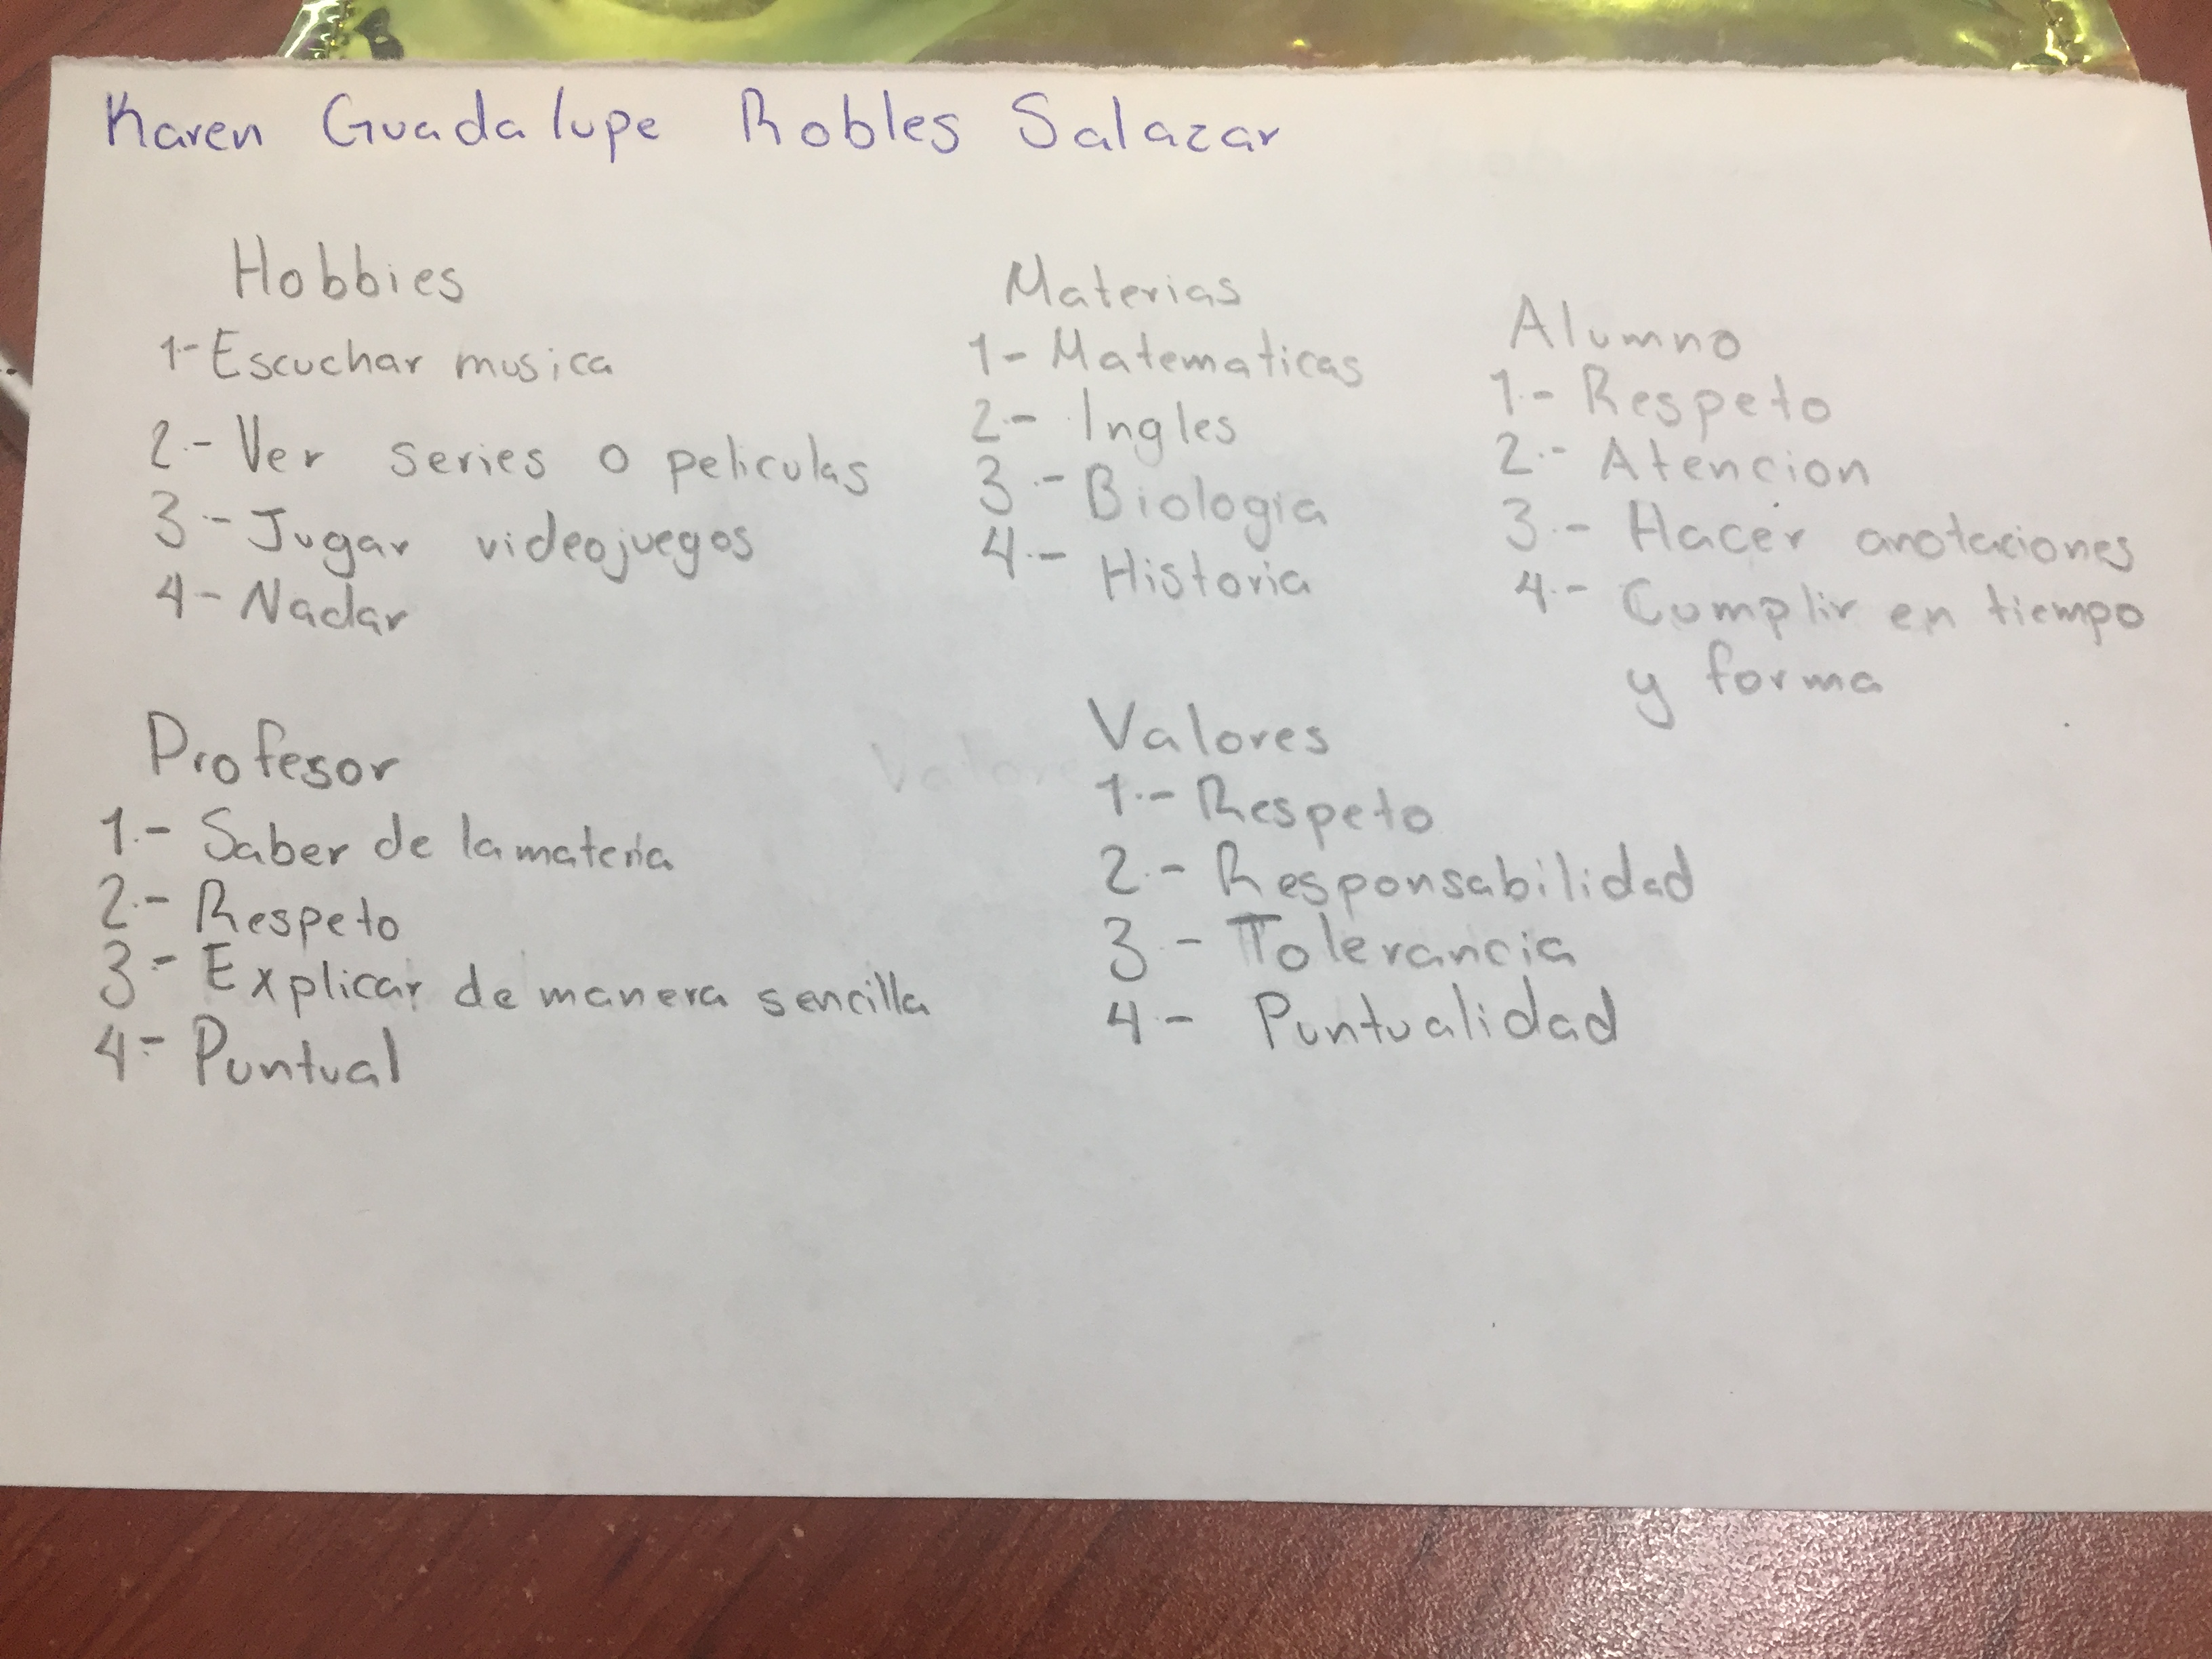 Karen Guadalupe Robles Salazar
Hobbies
1.- Escuchar musica
2.- Ver series o peliculas
3.- Jugar videojuegos
4.- Nadar
Materias
1.- Matematicas
2.- Ingles
3.- Biologia
4.- Historia
Alumno
1.- Respeto
2.- Atencion
3.- Hacer anotaciones
4.- Cumplir en tiempo
y forma
Profesor
1.- Saber de la materia
2.- Respeto
3.- Explicar de manera sencilla
4.- Puntual
Valores
1.- Respeto
2.- Responsabilidad
3.- Tolerancia
4.- Puntualidad